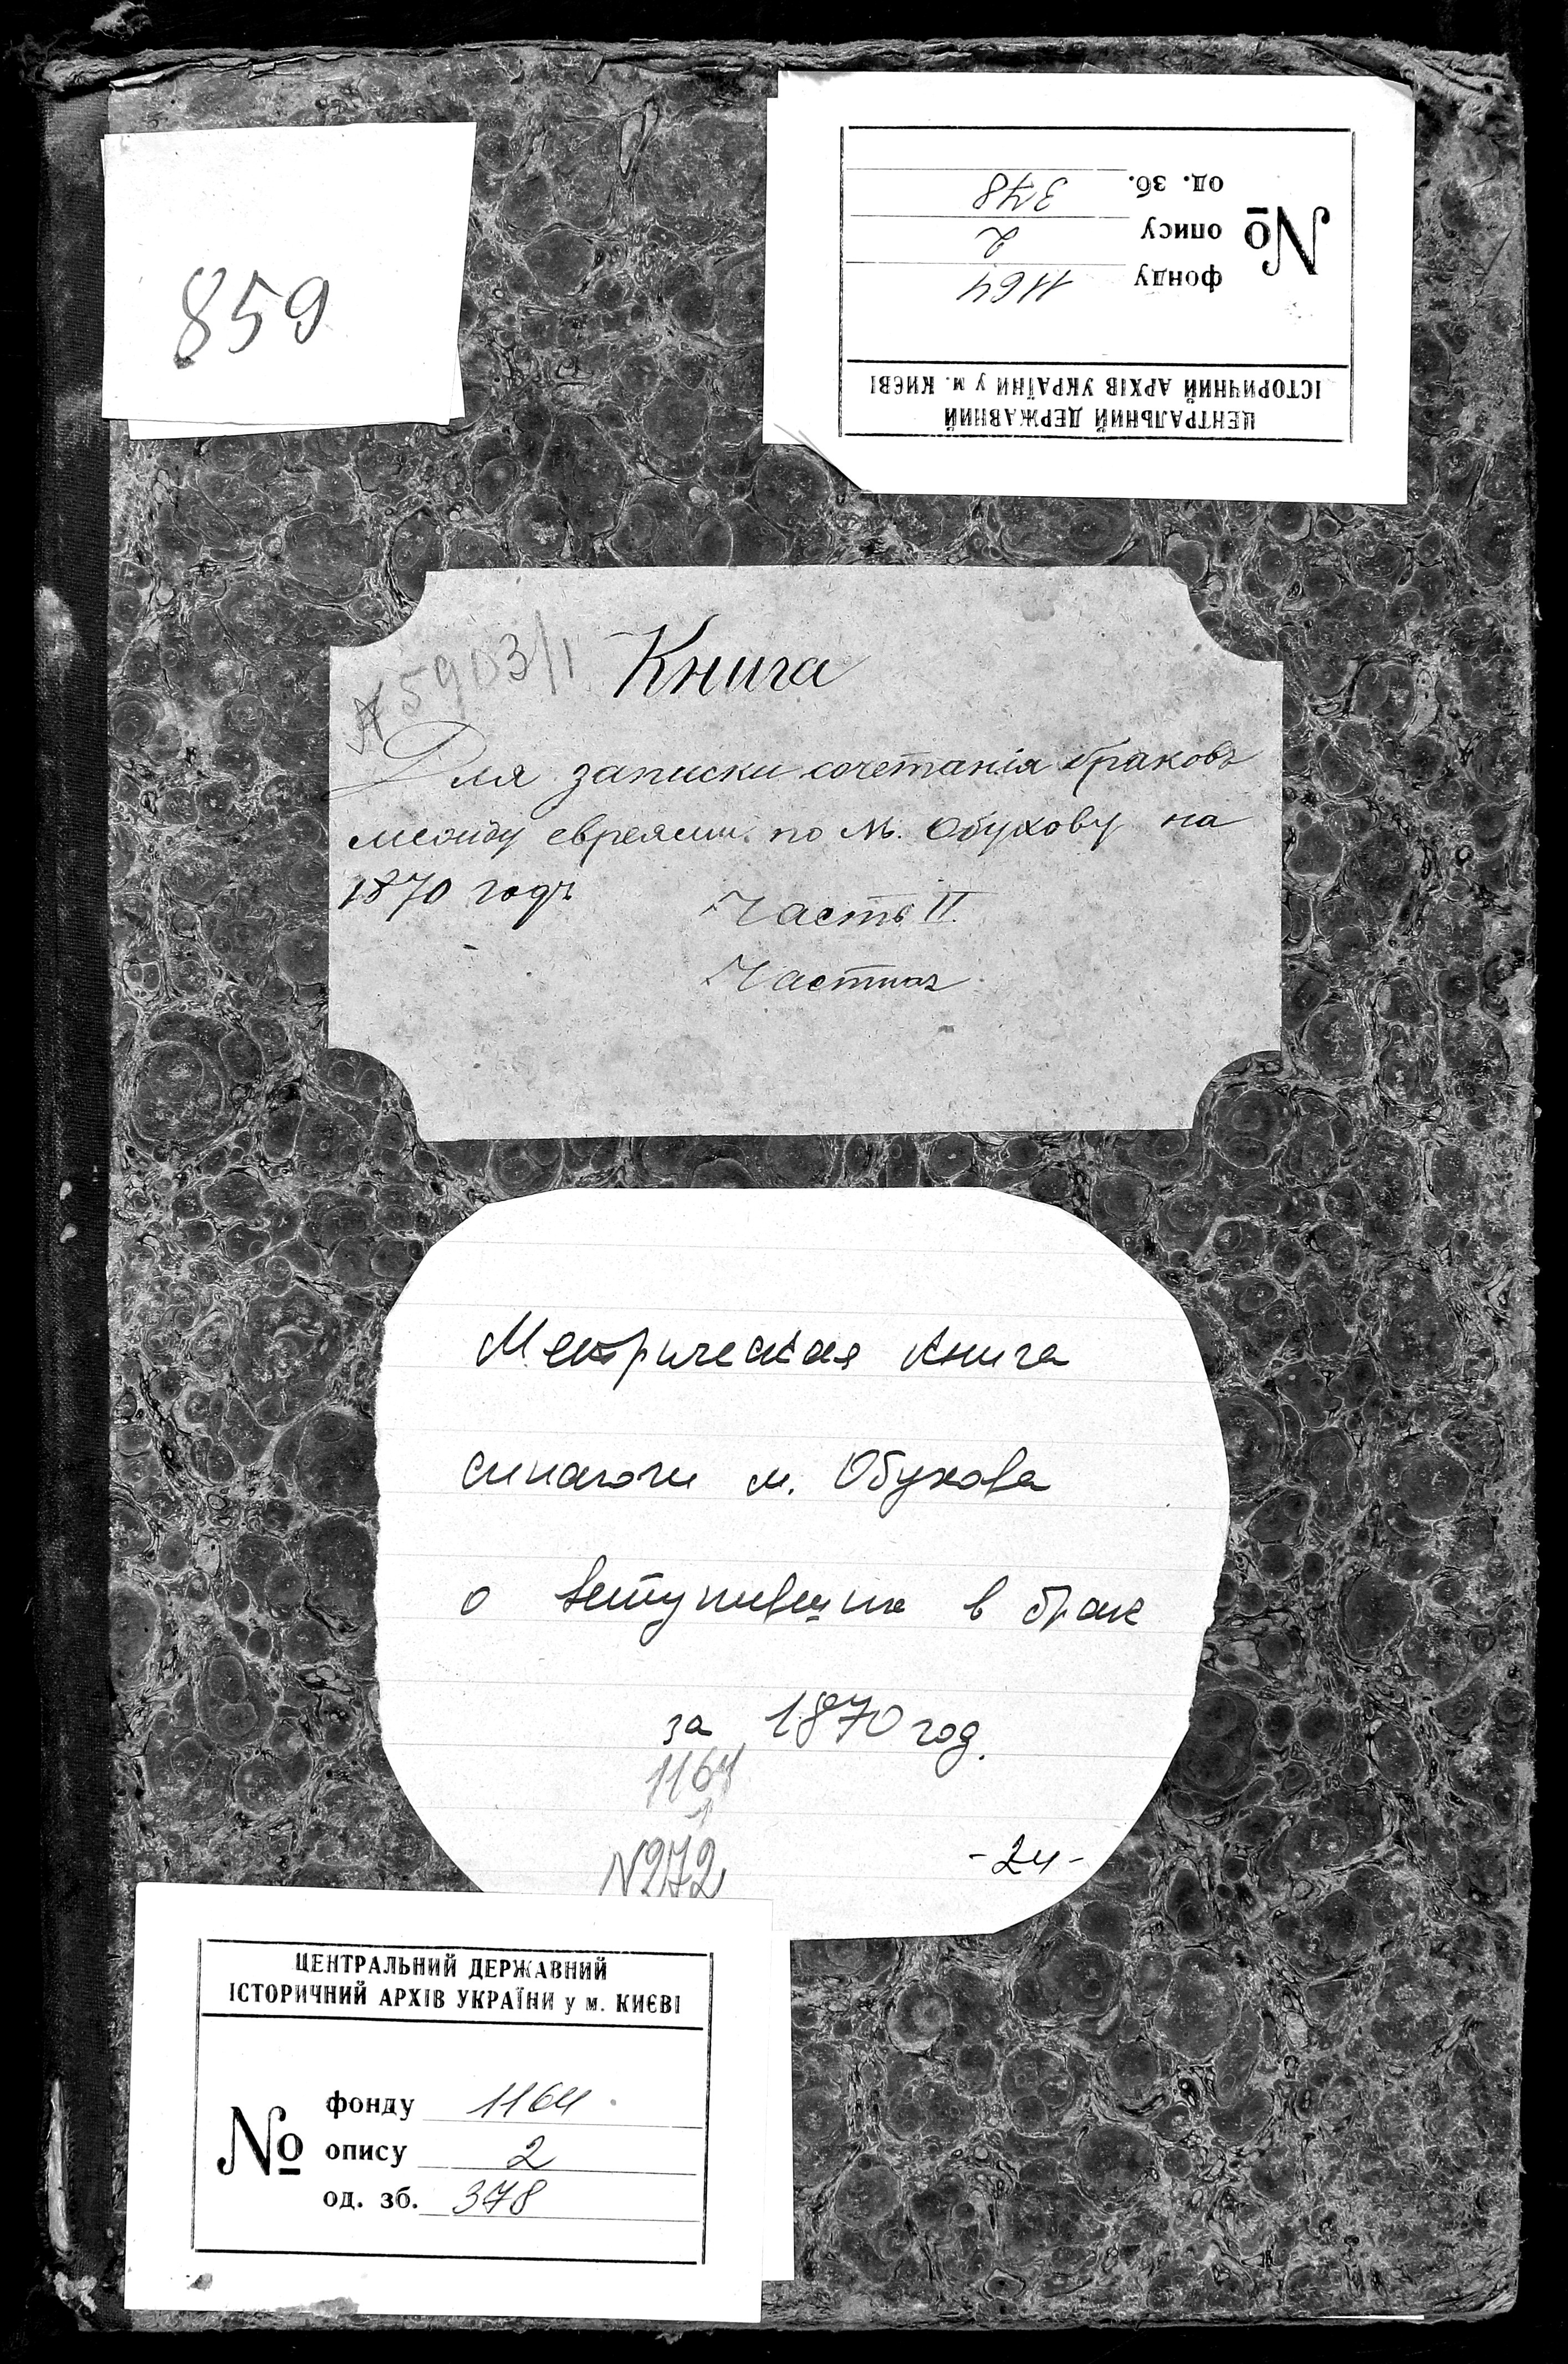 859
ЦЕНТРАЛЬНИЙ ДЕРЖАВНИЙ
ІСТОРИЧНИЙ АРХІВ УКРАЇНИ у м. КИЄВІ
№
фонду 1164
опису 2
од. зб. 378
5903/1
Книга
Для записки сочетанія браковъ
между евреями по м. Обухову на
1870 годъ
Часть II
Метрическая книга
синагоги м. Обухова
о вступивших в брак
за 1870 год.
1164
1
N272
-24-
ЦЕНТРАЛЬНИЙ ДЕРЖАВНИЙ
ІСТОРИЧНИЙ АРХІВ УКРАЇНИ у м. КИЄВІ
№
фонду 1164
опису 2
од. зб. 378